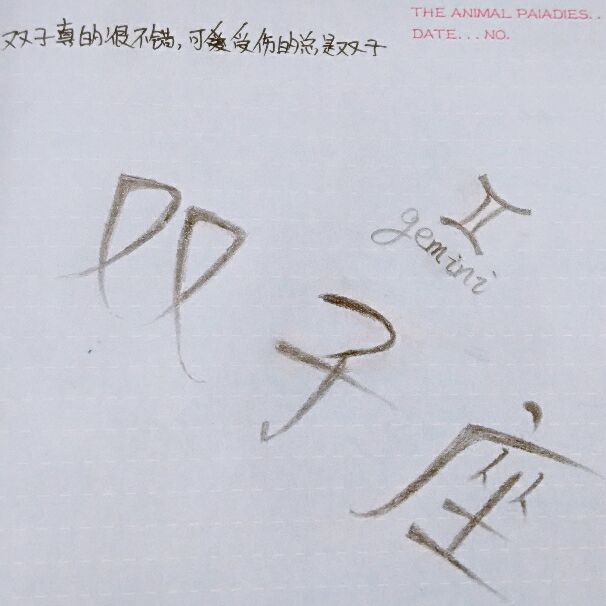 THE ANIMAL PAIADIES..
DATE...NO.
双子真的很不错,可受伤的总是双子
gemini
双子座